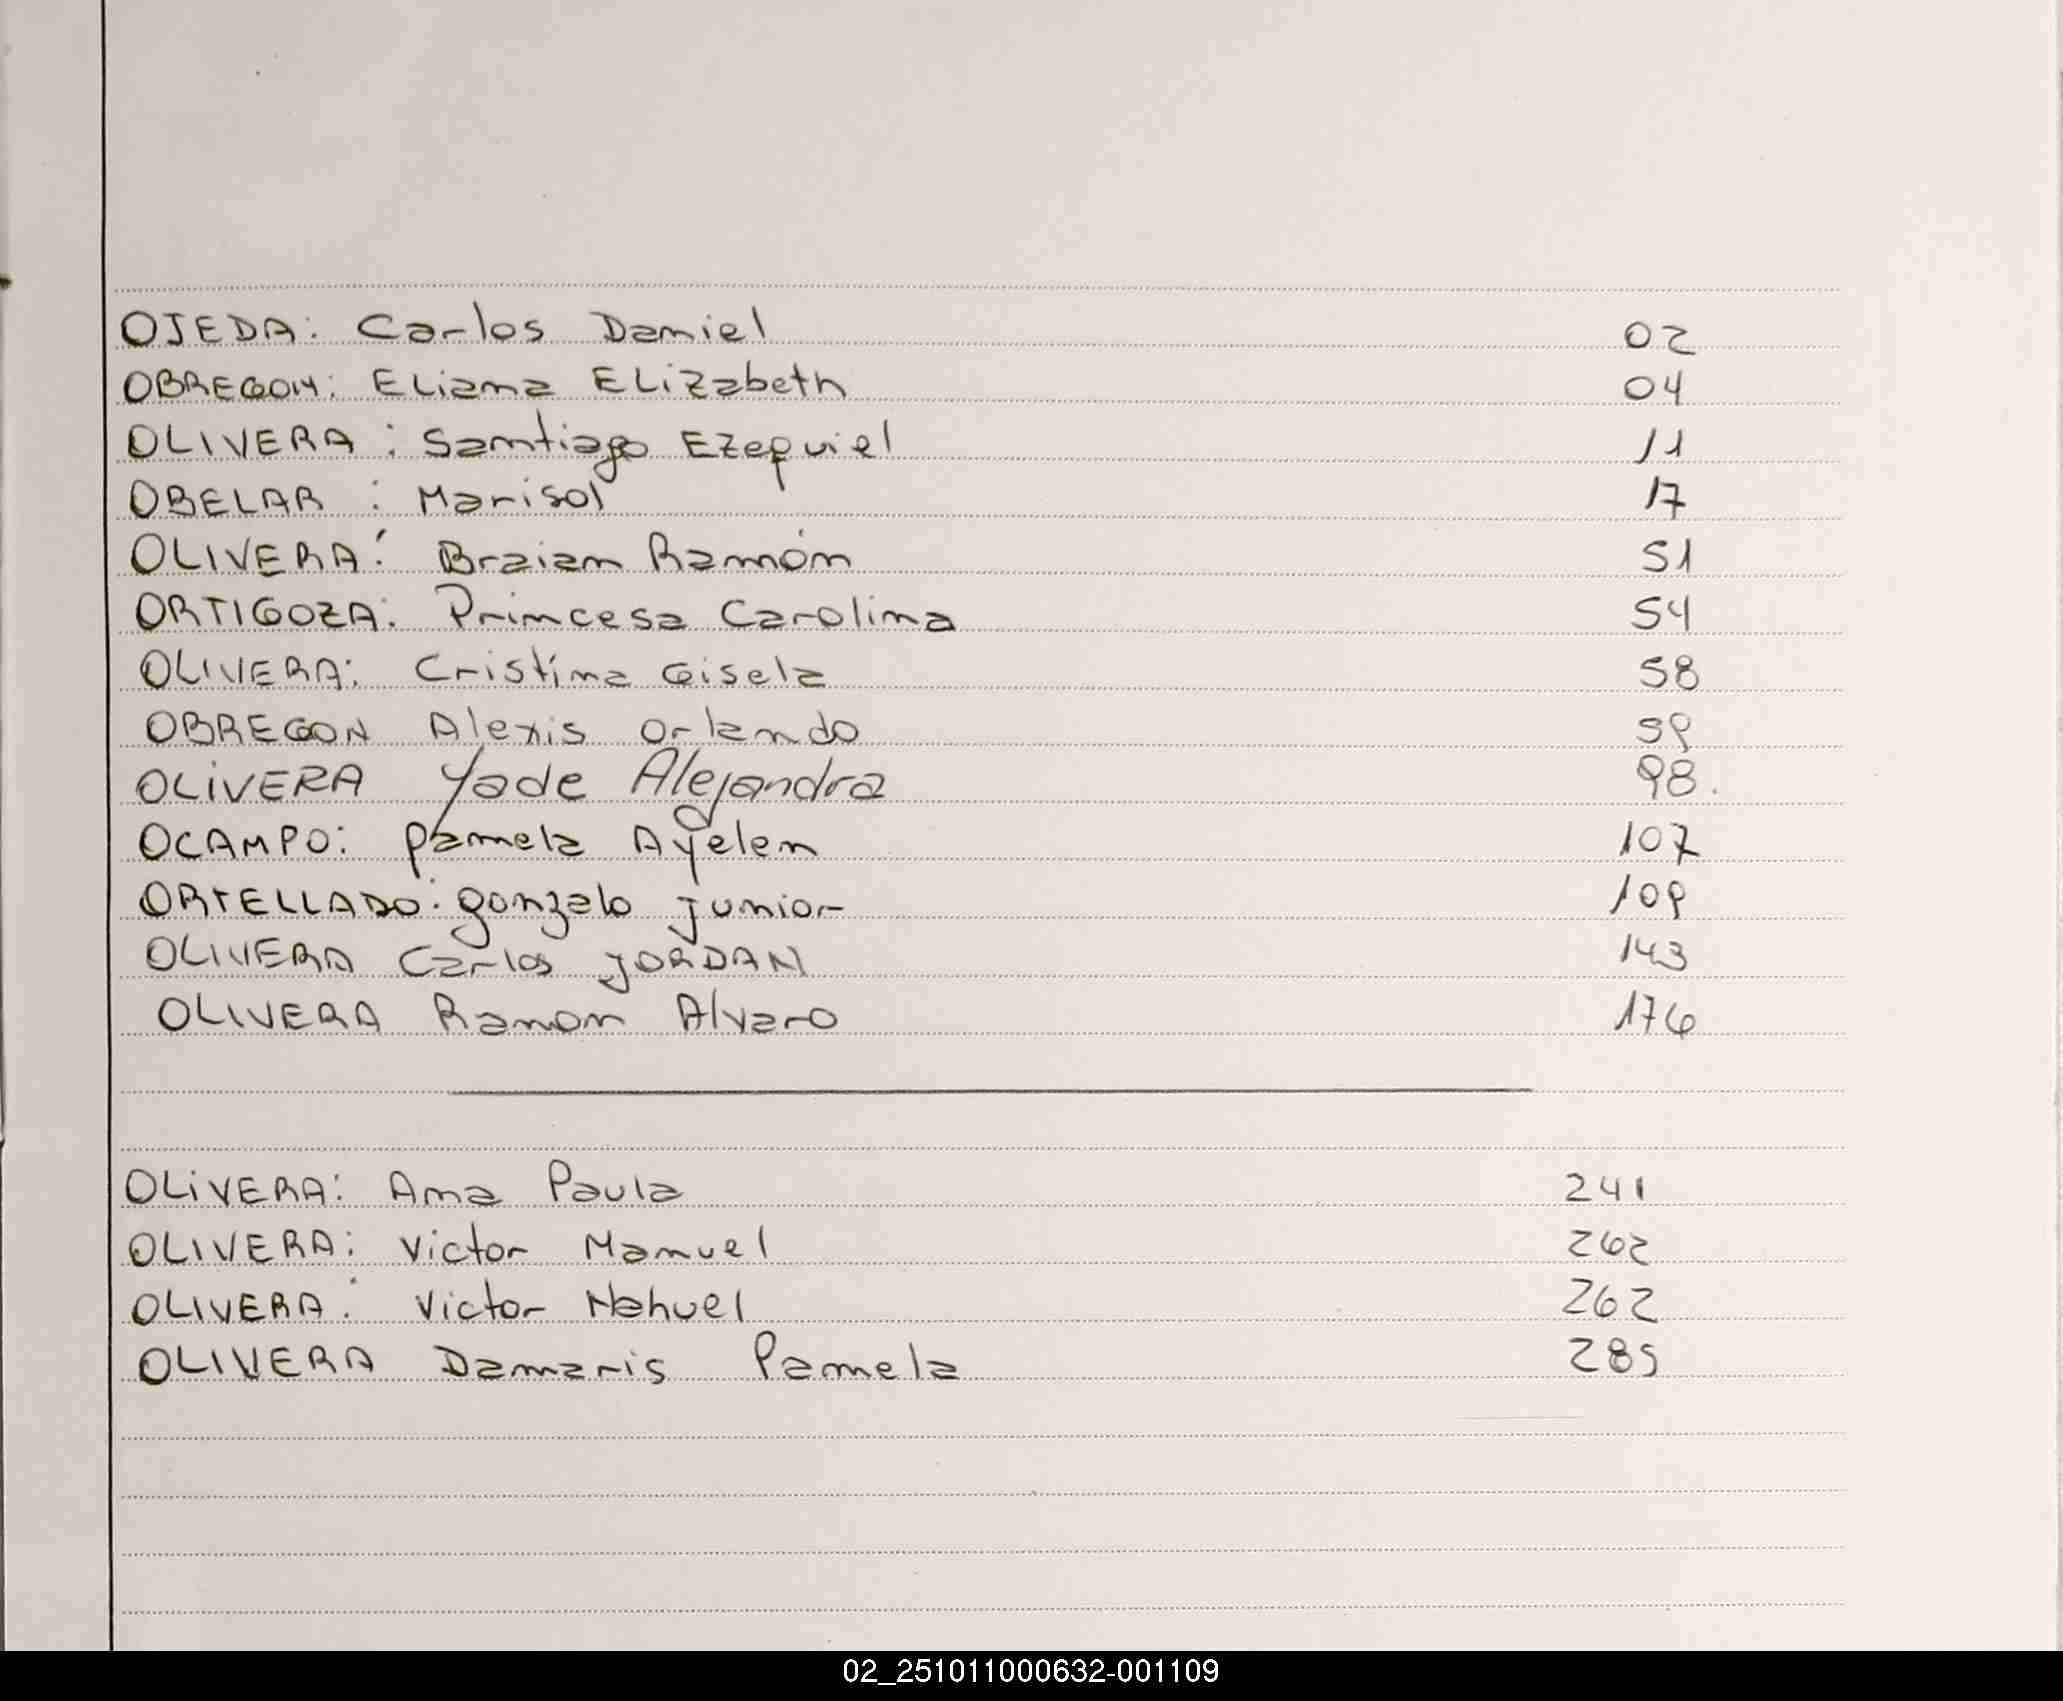 OJEDA: Carlos Daniel 02
OBREGON: Eliana ELizabeth 04
OLIVERA: Santiago Ezequiel 11
OBELAR: Marisol 17
OLIVERA: Braian Ramón 51
ORTIGOZA: Princesa Carolina 54
OLIVERA: Cristina Gisela 58
OBREGON Alexis Orlando 59
OLIVERA Yade Alejandra 98.
OCAMPO: Pamela Ayelen 107
ORTELLADO: gonzalo junior 109
OLIVERA Carlos JORDAN 143
OLIVERA Ramon Alvaro 176
OLIVERA: Ana Paula 241
OLIVERA: Victor Manuel 262
OLIVERA: Victor Nahuel 262
OLIVERA Damaris Pamela 285
02_251011000632-001109